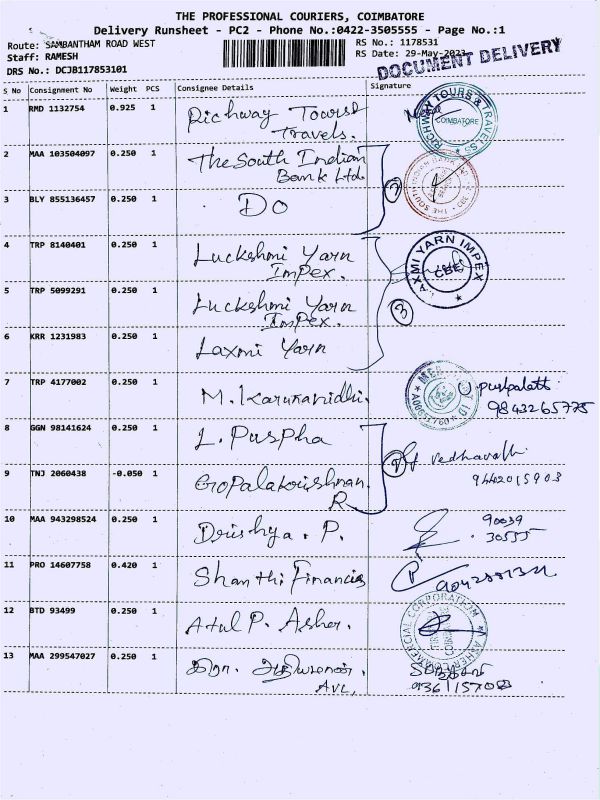 THE PROFESSIONAL COURIERS, COIMBATORE
Delivery Runsheet - PC2 - Phone No.:0422-3505555 - Page No.:1
Route: SAMBANTHAM ROAD WEST RS No.: 1178531
Staff: RAMESH RS Date: 29-May-2023
DRS No.: DCJB117853101 DOCUMENT DELIVERY
S No Consignment No Weight PCS Consignee Details Signature
1 RMD 1132754 0.925 1 Richway Tours &
Travels.
RICHWAY TOURS & TRAVELS COIMBATORE
2 MAA 103504097 0.250 1 The South Indian
Bank Ltd.
3 BLY 855136457 0.250 1 DO
4 TRP 8140401 0.250 1 Luckshmi Yarn
Impex.
LAXMI YARN IMPEX CBE
5 TRP 5099291 0.250 1 Luckshmi Yarn
Impex.
3
6 KRR 1231983 0.250 1 Laxmi Yarn
7 TRP 4177002 0.250 1 M. Karunanidhi.
9843265775
8 GGN 98141624 0.250 1 L. Puspha
9 TNJ 2060438 -0.050 1 Gopalakrishnan.
R
9442015903
10 MAA 943298524 0.250 1 Drishya. P. 90039
30555
11 PRO 14607758 0.420 1 Shanthi Financis
12 BTD 93499 0.250 1 Atul P. Asher.
13 MAA 299547027 0.250 1 அதியமான்.
AVL,